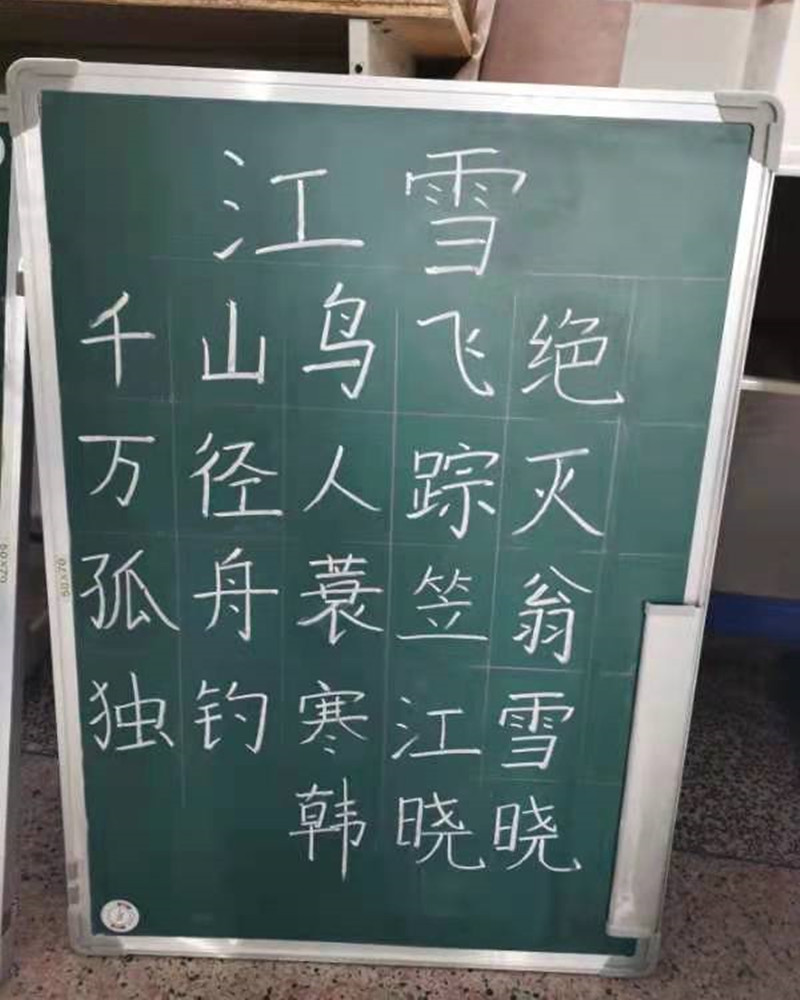 江雪
千山鸟飞绝
万径人踪灭
孤舟蓑笠翁
独钓寒江雪
韩晓晓
50×70